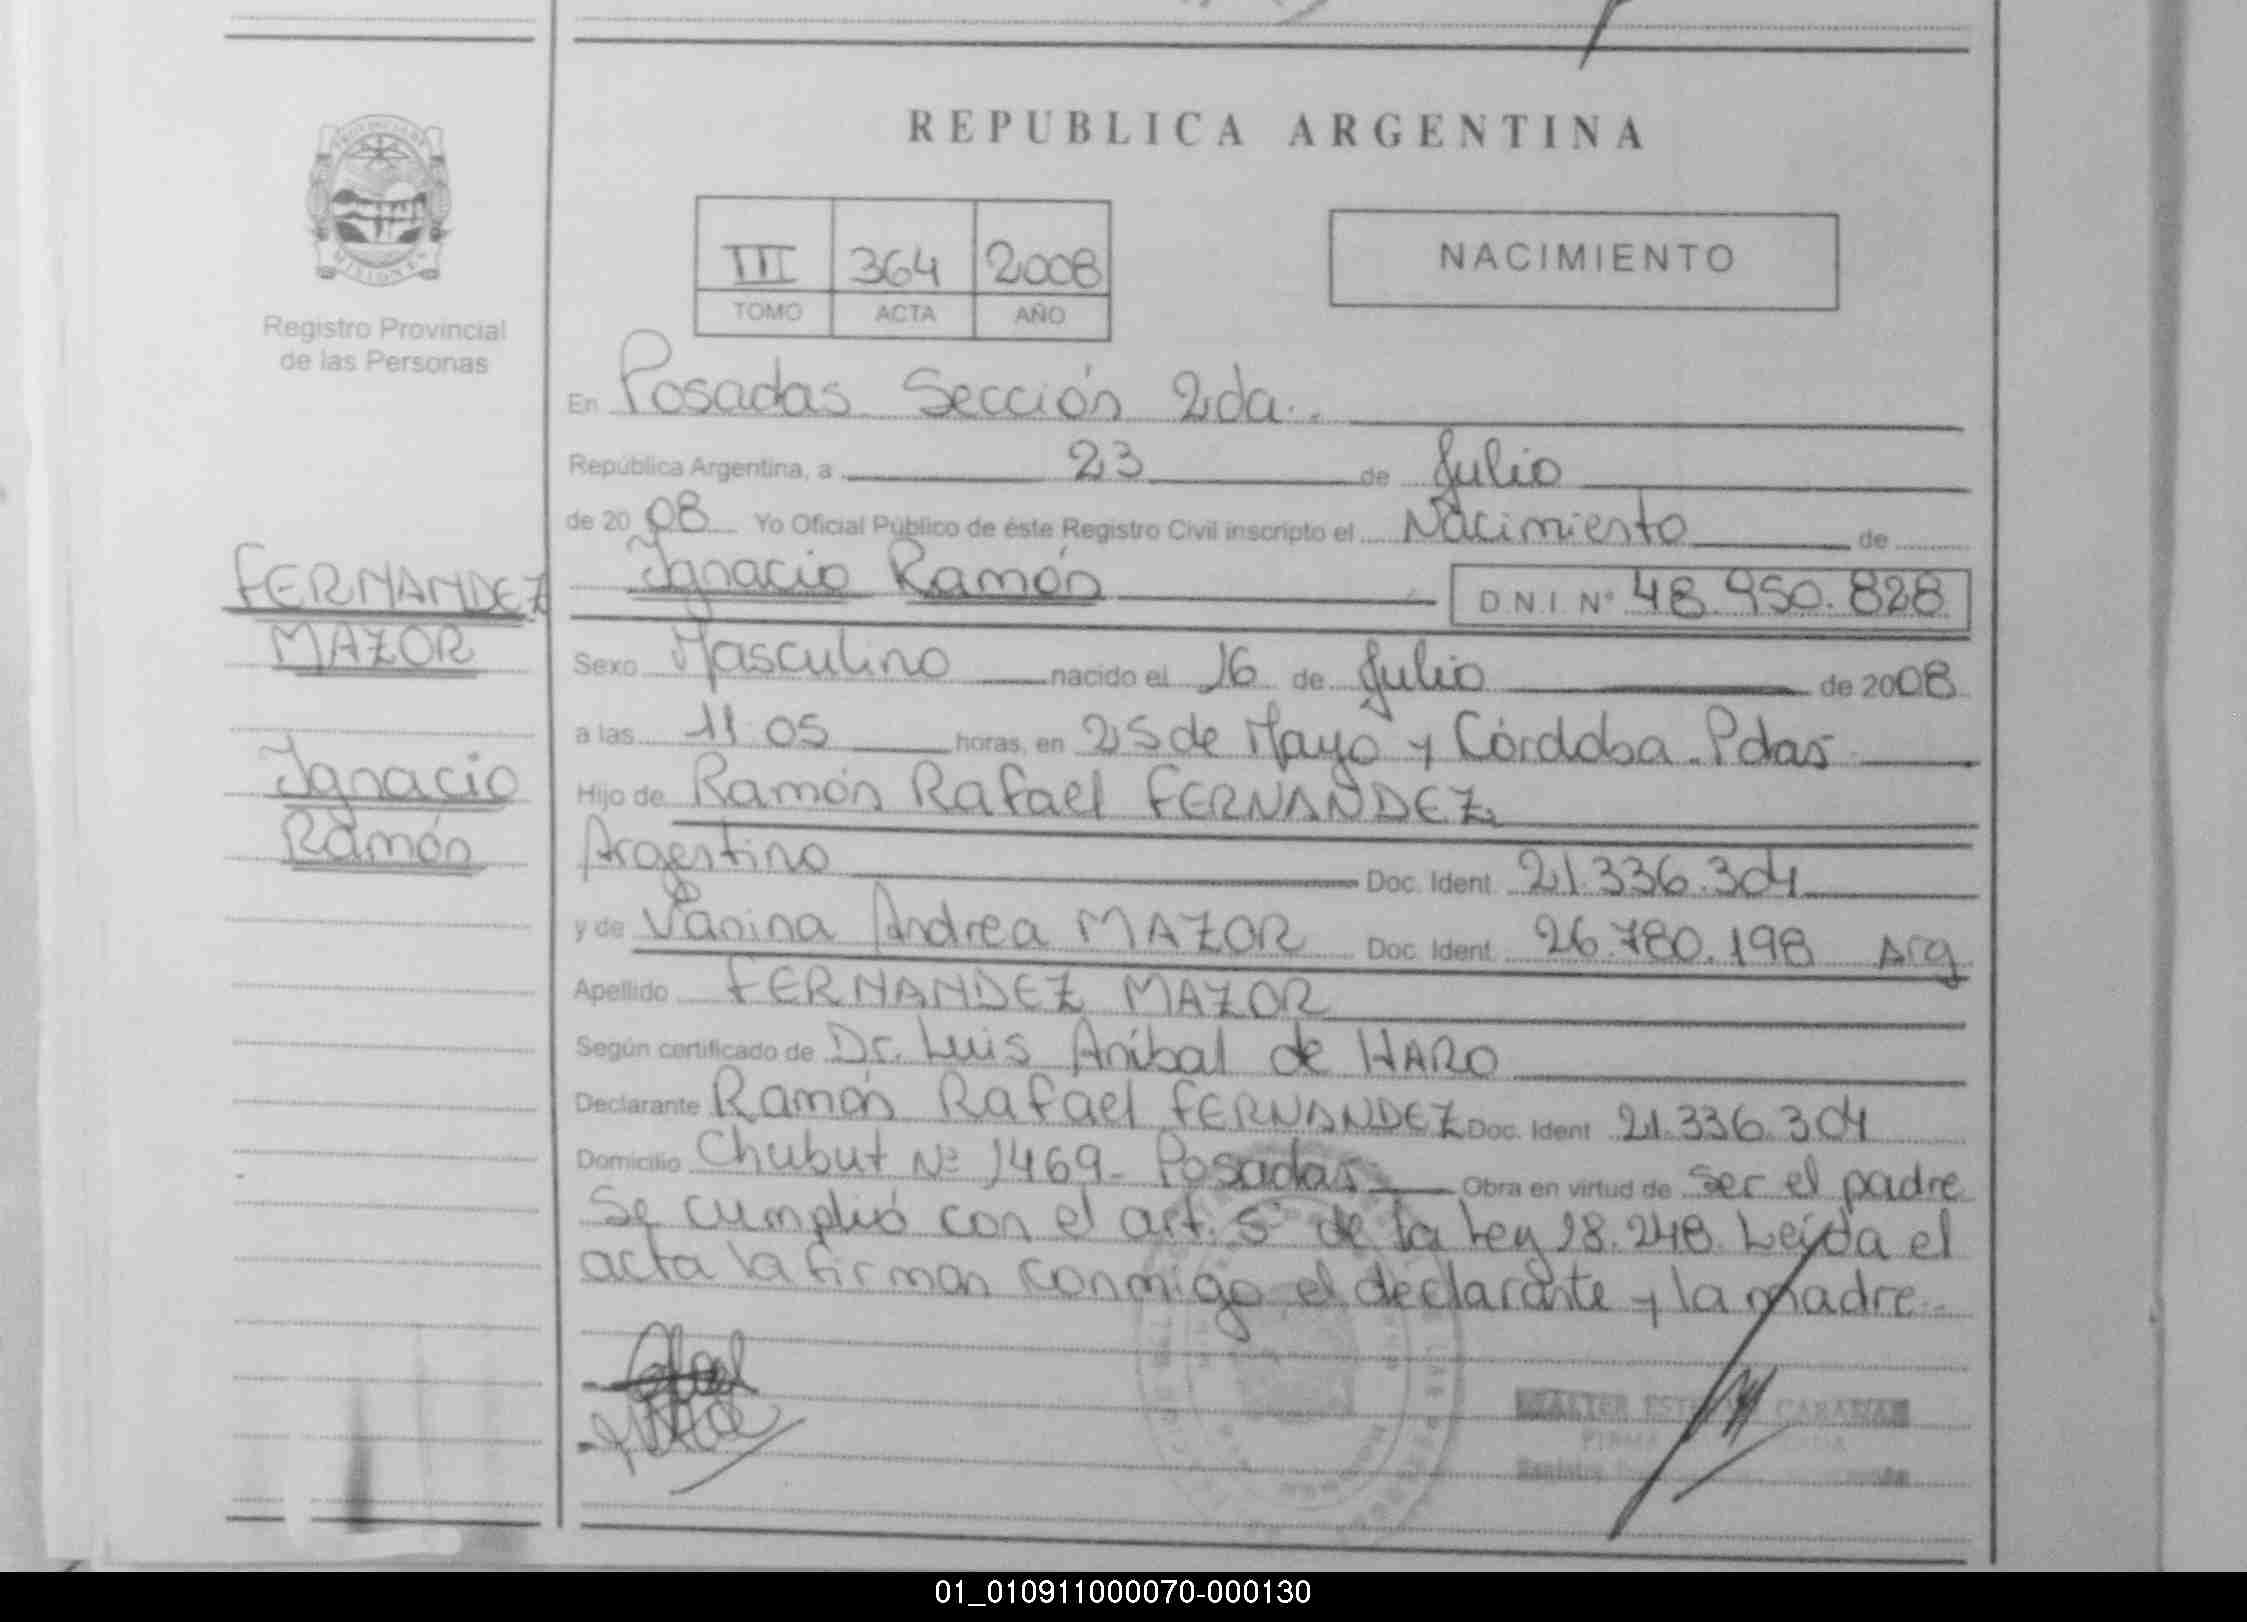 REPUBLICA ARGENTINA
PROVINCIA DE MISIONES
Registro Provincial
de las Personas
III 364 2008
TOMO ACTA AÑO
NACIMIENTO
En Posadas Sección 2da.
República Argentina, a 23 de Julio
de 2008 Yo Oficial Público de éste Registro Civil inscripto el Nacimiento de
Ignacio Ramón D.N.I. Nº 48.950.828
FERNANDEZ
MAZOR
Ignacio
Ramón
Sexo Masculino nacido el 16 de Julio de 2008
a las 11:05 horas, en 25 de Mayo y Córdoba. Pdas
Hijo de Ramón Rafael FERNANDEZ
Argentino Doc. Ident. 21.336.304
y de Vanina Andrea MAZOR Doc. Ident. 26.780.198 Arg
Apellido FERNANDEZ MAZOR
Según certificado de Dr. Luis Aníbal de HARO
Declarante Ramón Rafael FERNANDEZ Doc. Ident 21.336.304
Domicilio Chubut Nº 1469 - Posadas Obra en virtud de ser el padre
Se cumplió con el art. 5º de la Ley 18.248. Leída el
acta la firman conmigo el declarante y la madre.
01_010911000070-000130